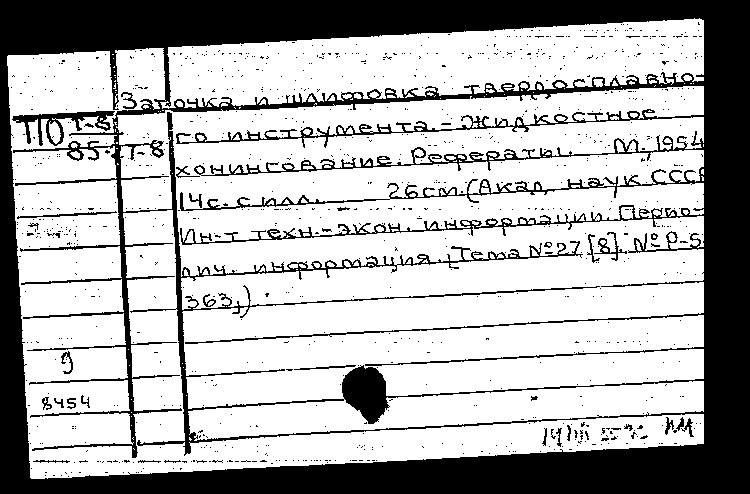 Заточка и шлифовка твердосплавно-
П0 Т-8
85-27-8
го инструмента.- Жидкостное
хонингование. Рефераты. М., 1954
14с. с илл. 26см. (Акад. наук СССР
Ин-т техн.-экон. информации. Перио-
дич. информация. Тема №27 [8]. № Р-5-
363)
9
8454